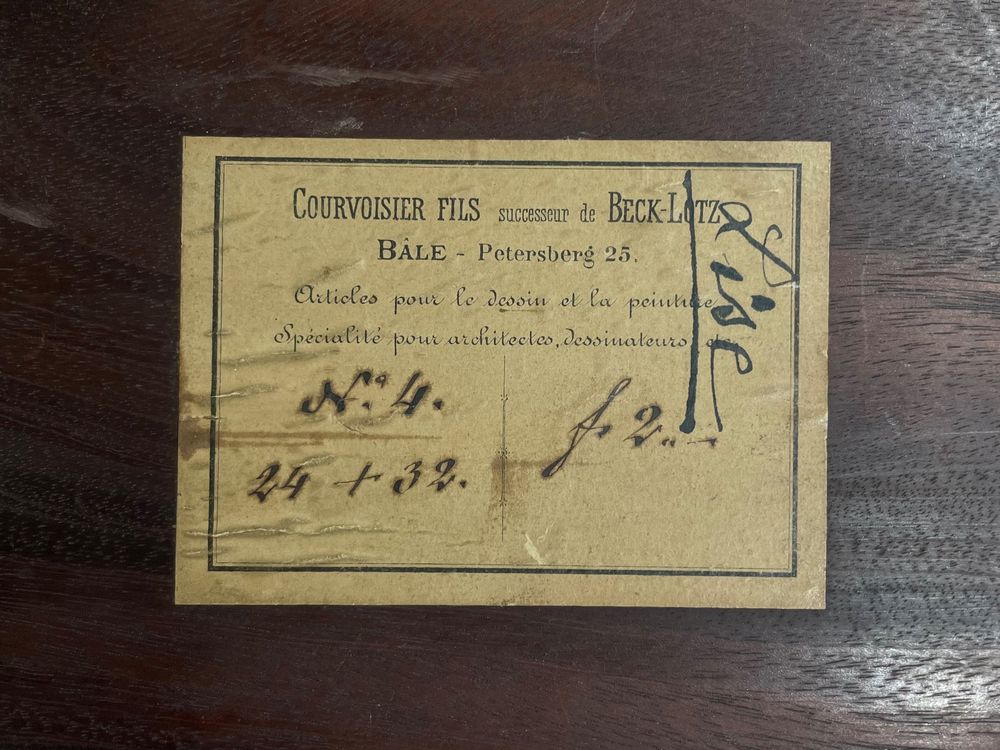 COURVOISIER FILS successeur de BECK-LOTZ
BÂLE - Petersberg 25.
Articles pour le dessin et la peinture
Spécialité pour architectes, dessinateurs, etc.
No. 4.
24 + 32.
f. 2.-
Lise